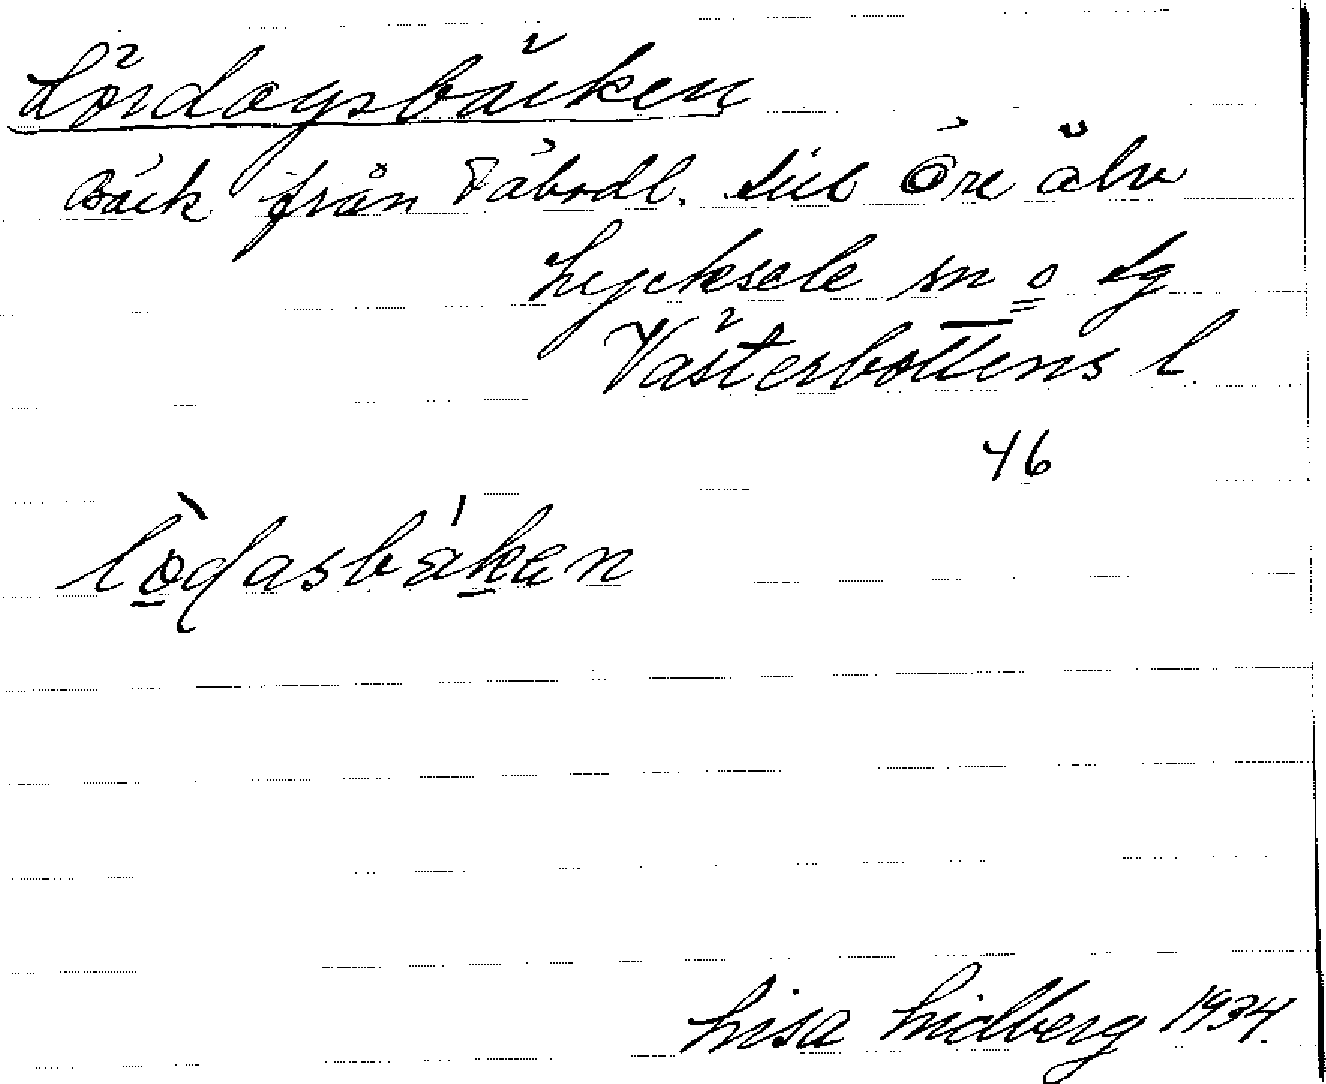 Lördagsbäcken
Bäck från Fäbodl. till Öre älv
Lycksele sn o lg
Västerbottens l.
46
lo̲dasbäk̲en
Lisa Lidberg 1934.